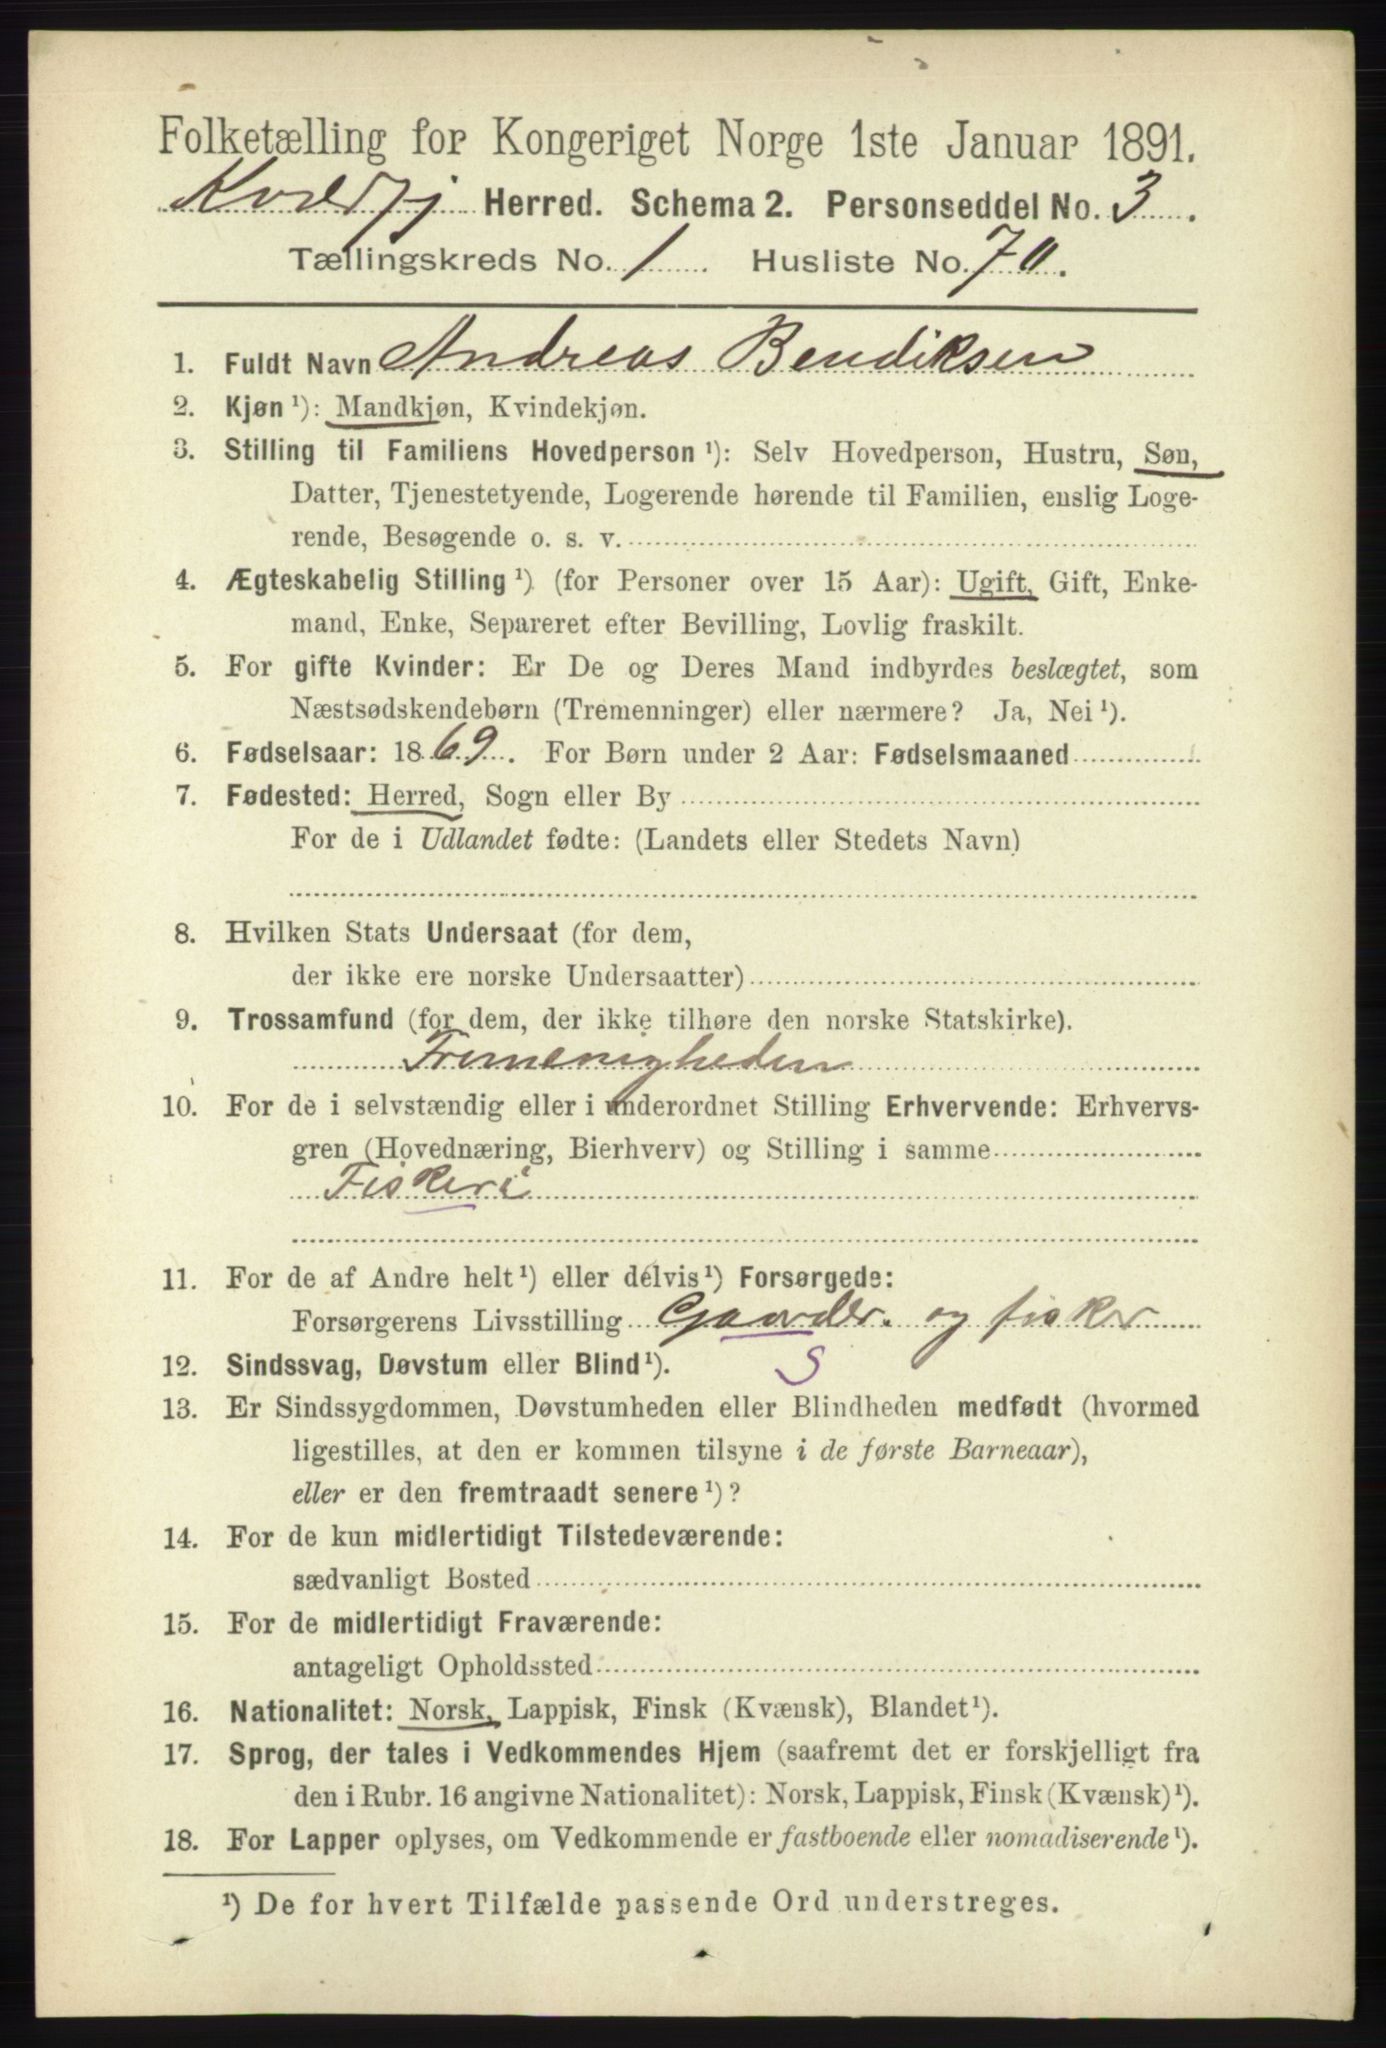 Folketælling for Kongeriget Norge 1ste Januar 1891.
Herred. Schema 2. Personseddel No. 3.
Tællingskreds No. 1 Husliste No. 70.
1. Fuldt Navn Andreas Bendiksen
2. Kjøn ¹): Mandkjøn, Kvindekjøn.
3. Stilling til Familiens Hovedperson ¹): Selv Hovedperson, Hustru, Søn,
Datter, Tjenestetyende, Logerende hørende til Familien, enslig Loge-
rende, Besøgende o. s. v.
4. Ægteskabelig Stilling ¹) (for Personer over 15 Aar): Ugift, Gift, Enke-
mand, Enke, Separeret efter Bevilling, Lovlig fraskilt.
5. For gifte Kvinder: Er De og Deres Mand indbyrdes beslægtet, som
Næstsødskendebørn (Tremenninger) eller nærmere? Ja, Nei ¹).
6. Fødselsaar: 1869. For Børn under 2 Aar: Fødselsmaaned
7. Fødested: Herred, Sogn eller By
For de i Udlandet fødte: (Landets eller Stedets Navn)
8. Hvilken Stats Undersaat (for dem,
der ikke ere norske Undersaatter)
9. Trossamfund (for dem, der ikke tilhøre den norske Statskirke).
Frimenigheden
10. For de i selvstændig eller i underordnet Stilling Erhvervende: Erhvervs-
gren (Hovednæring, Bierhverv) og Stilling i samme
Fiskeri
11. For de af Andre helt ¹) eller delvis ¹) Forsørgede:
Forsørgerens Livsstilling Gaardbr. og fisker
12. Sindssvag, Døvstum eller Blind ¹). S
13. Er Sindssygdommen, Døvstumheden eller Blindheden medfødt (hvormed
ligestilles, at den er kommen tilsyne i de første Barneaar),
eller er den fremtraadt senere ¹)?
14. For de kun midlertidigt Tilstedeværende:
sædvanligt Bosted
15. For de midlertidigt Fraværende:
antageligt Opholdssted
16. Nationalitet: Norsk, Lappisk, Finsk (Kvænsk), Blandet ¹).
17. Sprog, der tales i Vedkommendes Hjem (saafremt det er forskjelligt fra
den i Rubr. 16 angivne Nationalitet): Norsk, Lappisk, Finsk (Kvænsk) ¹).
18. For Lapper oplyses, om Vedkommende er fastboende eller nomadiserende ¹).
¹) De for hvert Tilfælde passende Ord understreges.